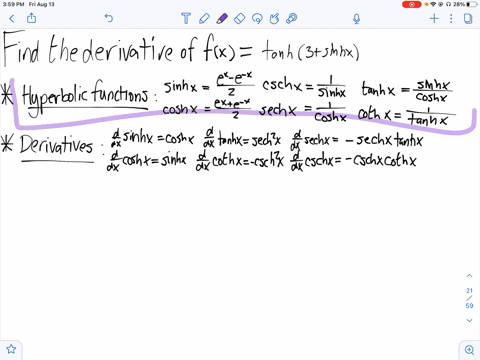 3:59 PM Fri Aug 13
28%
Find the derivative of f(x) = tanh (3+sinhx)
* Hyperbolic functions : sinhx = (e^x-e^-x)/2 cschx = 1/sinhx tanhx = sinhx/coshx
coshx = (e^x+e^-x)/2 sechx = 1/coshx cothx = 1/tanhx
* Derivatives : d/dx sinhx = coshx d/dx tanhx = sech²x d/dx sechx = - sechx tanhx
d/dx coshx = sinhx d/dx cothx = -csch²x d/dx cschx = -cschx cothx
21
/
59